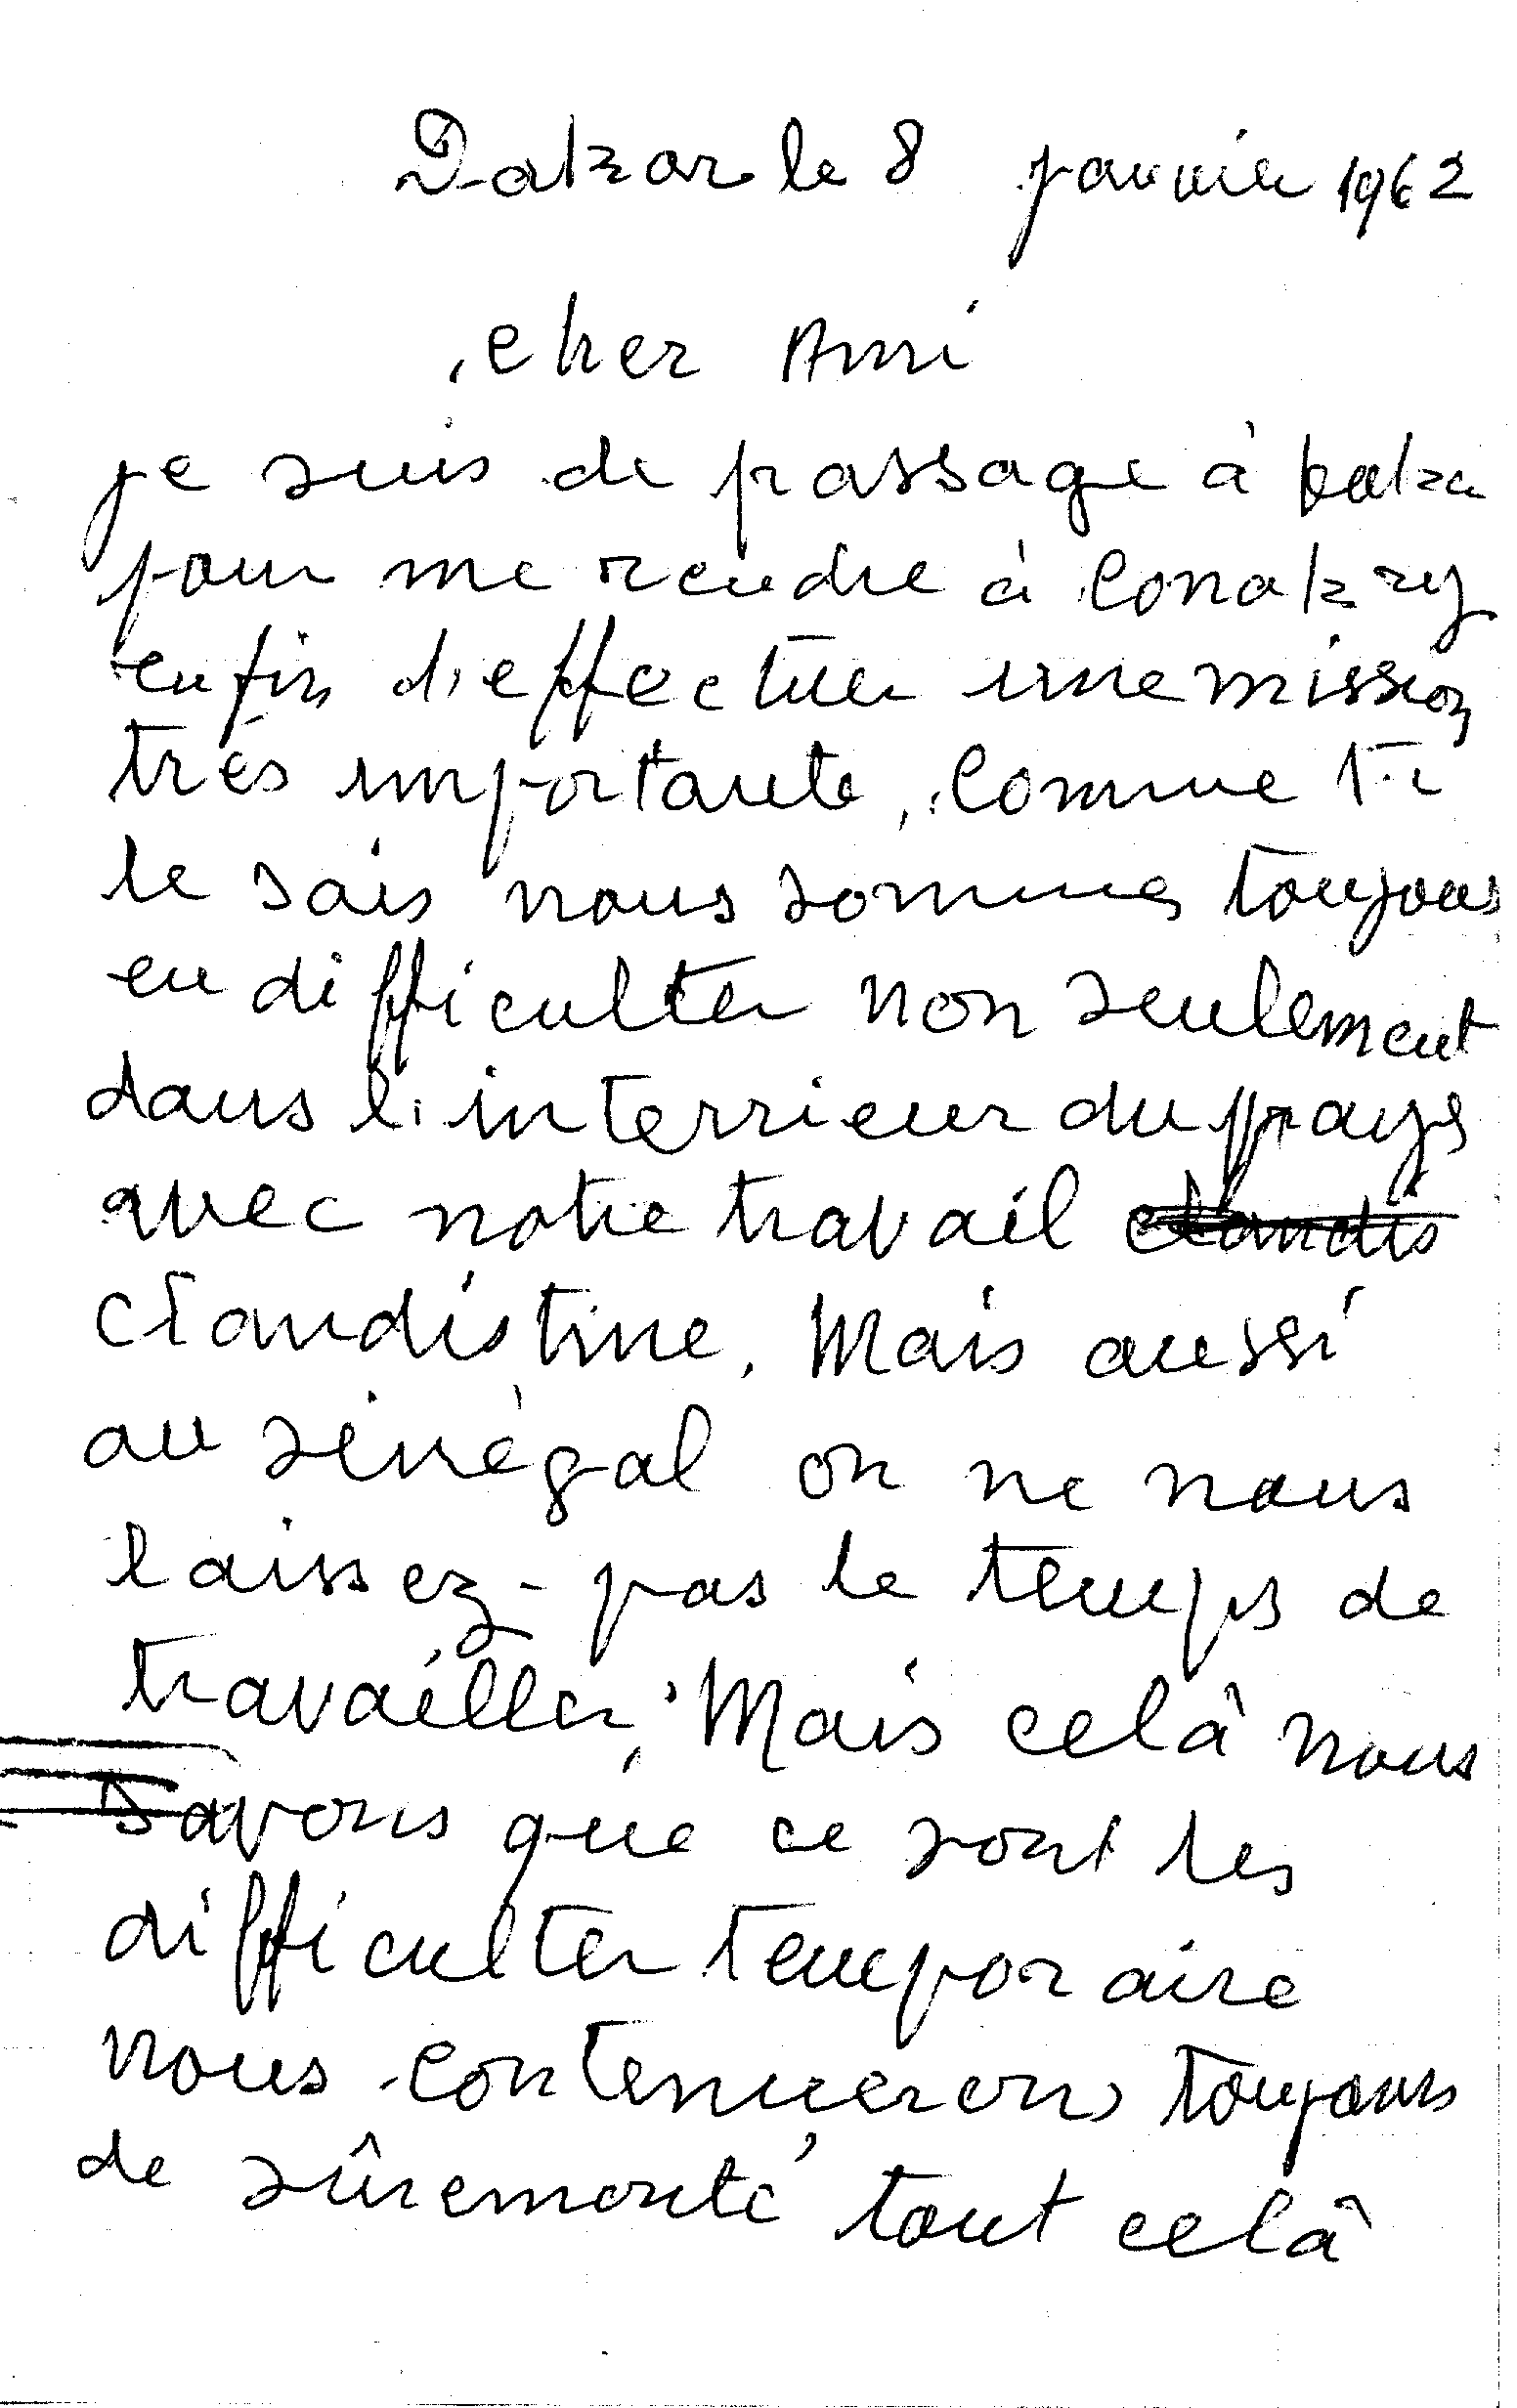 Dakar le 8 janvier 1962
Cher Ami
je suis de passage à Dakar
pour me rendre à Conakry
enfin d'effectuer une mission
très importante, Comme tu
le sais nous sommes toujours
en difficulter non seulement
dans l'interrieur du pays
avec notre travail clandis
clandistine. Mais aussi
au sénégal on ne nous
laissez-pas le temps de
travailler, Mais celà nous
savons que ce sont les
difficulter temporaire
nous contenuerons toujours
de sûremonté tout celà